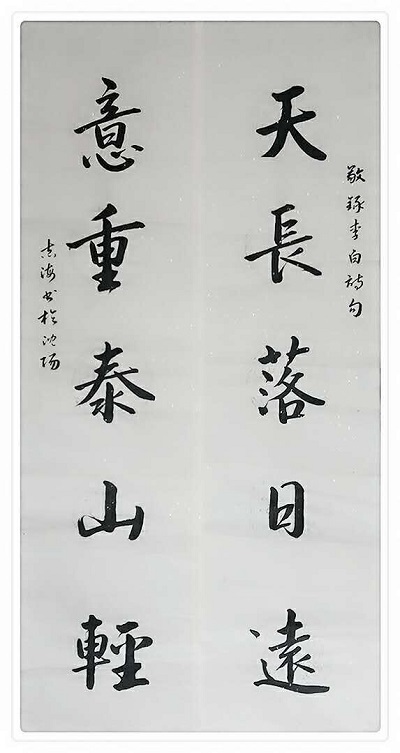 敬録李白詩句
天長落日遠
意重泰山輕
志海书於沈阳